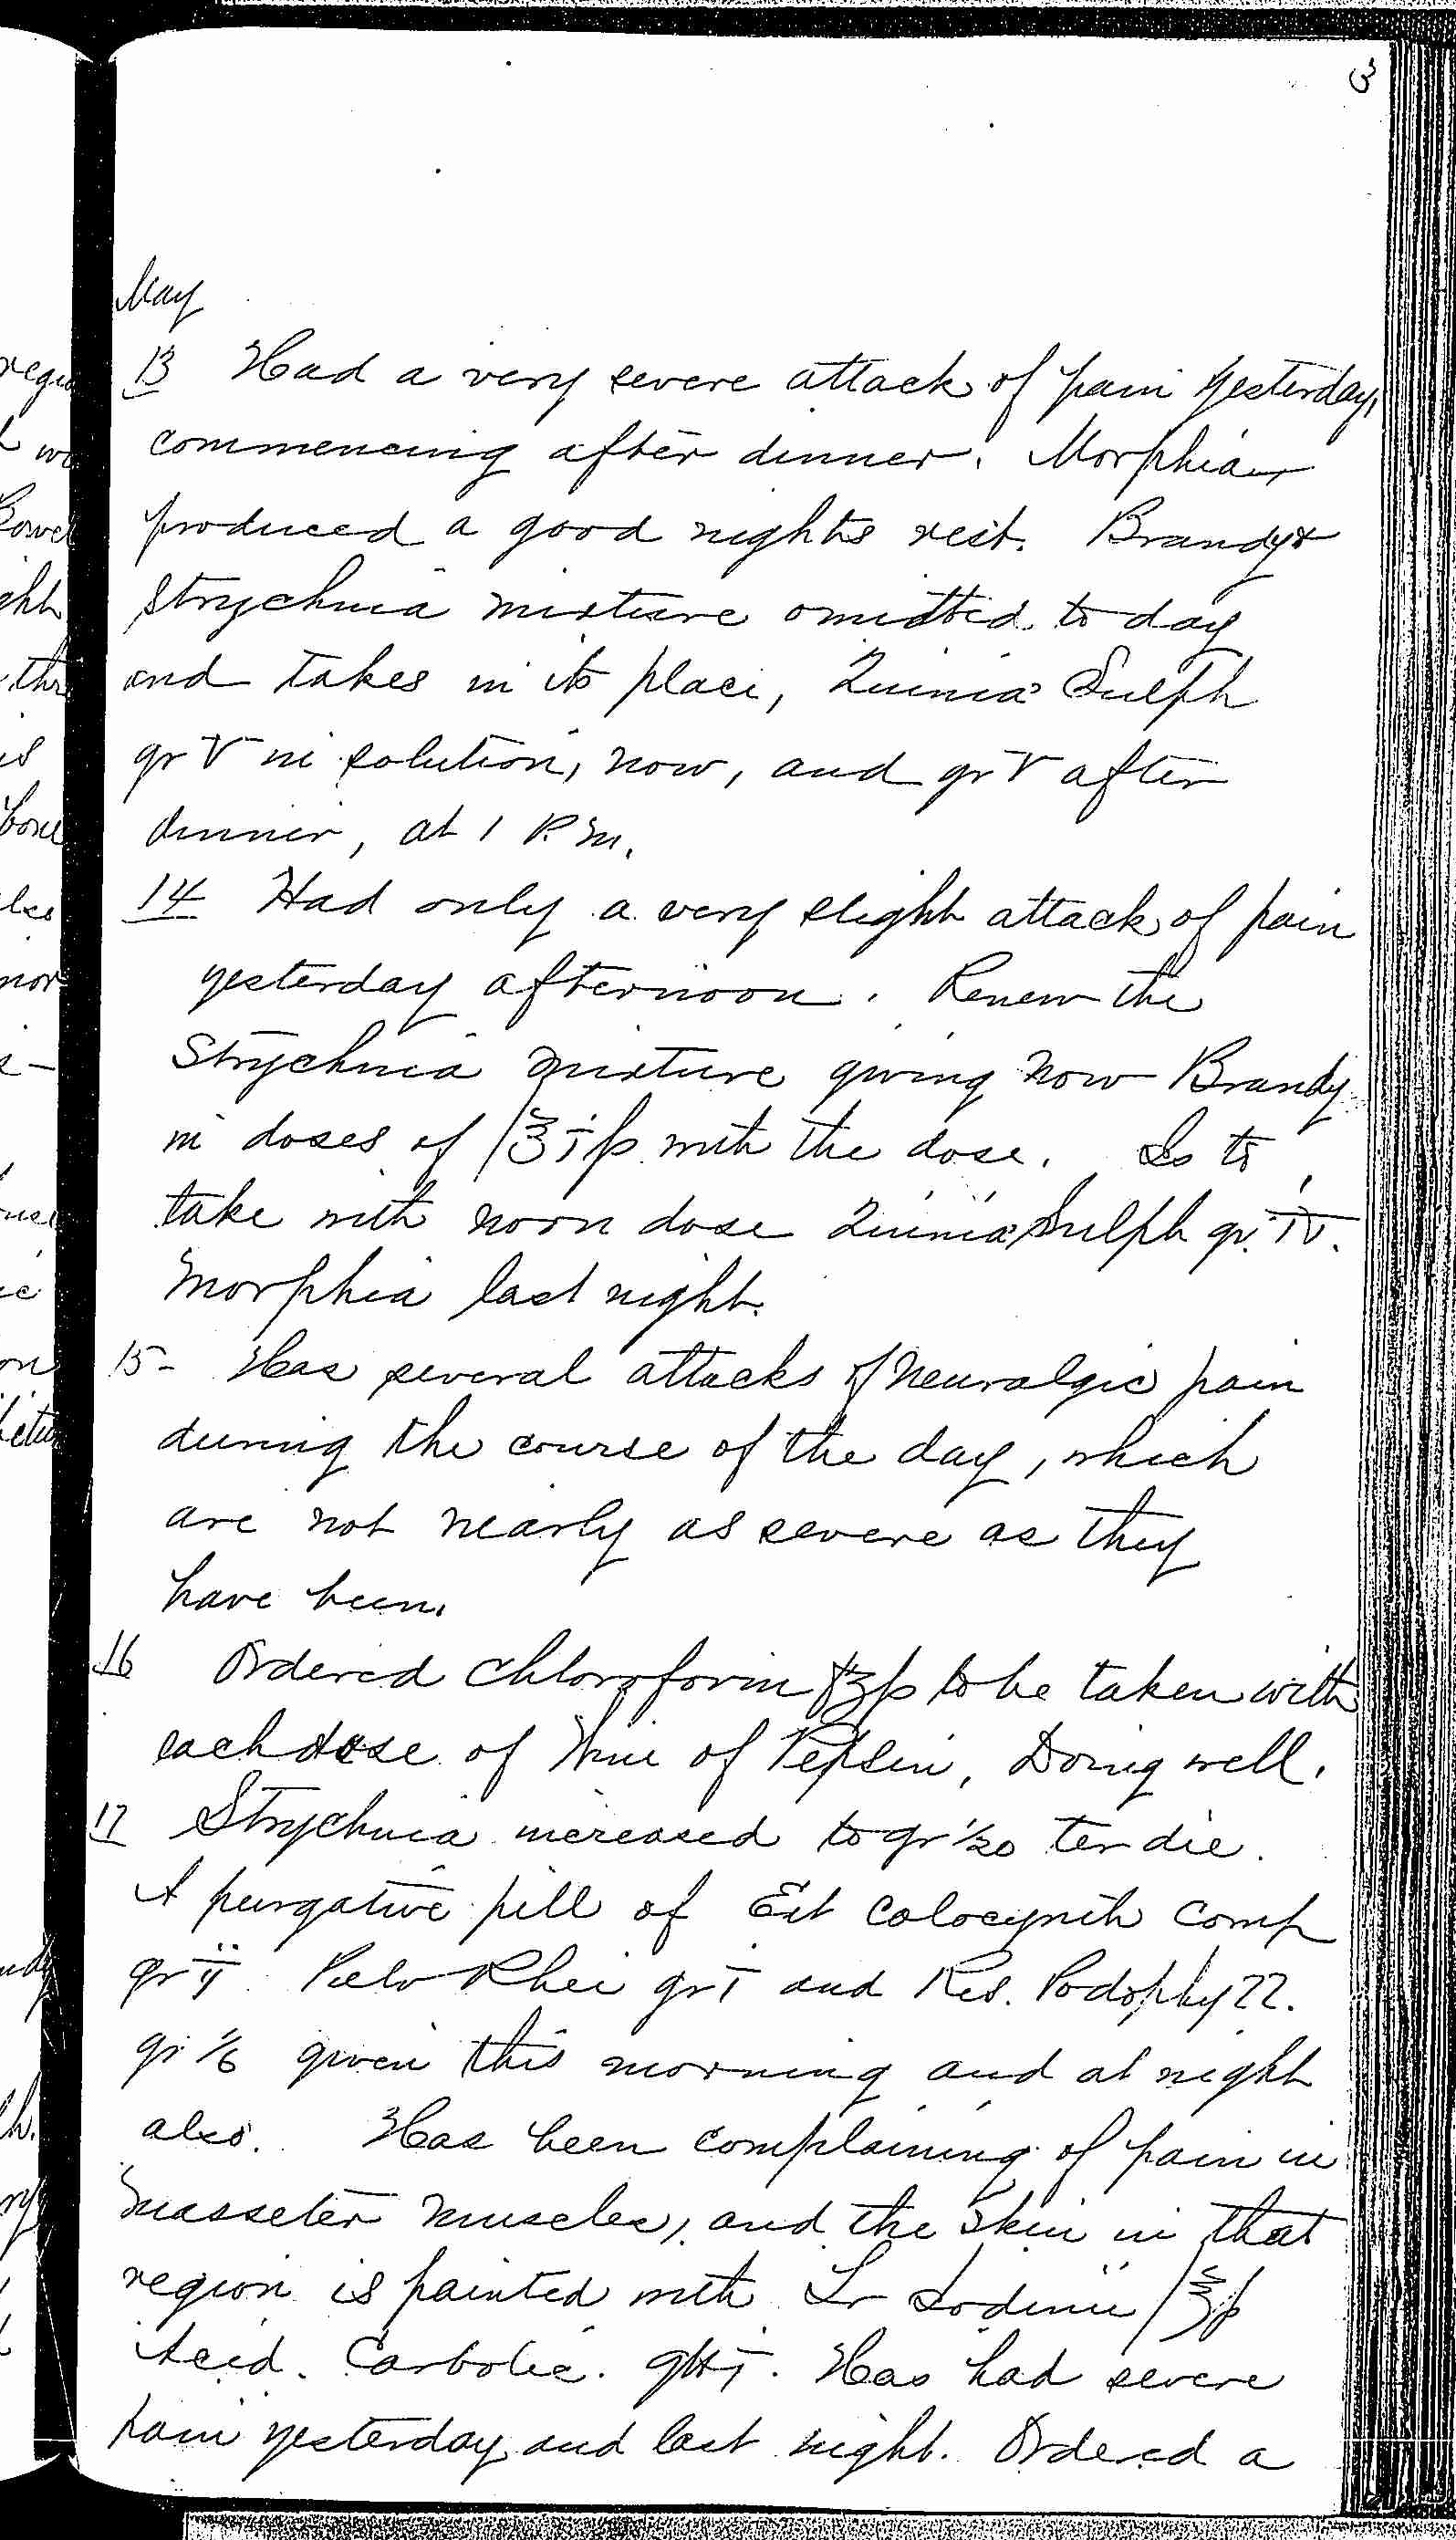 3
May
13 Had a very severe attack of pain yesterday,
commencing after dinner. Morphia
produced a good nights rest. Brandy &
Strychnia mixture omitted to day
and takes in its place, Quinia Sulph
gr V in solution, now, and gr V after
dinner, at 1 P.M.
14 Had only a very slight attack of pain
yesterday afternoon. Renew the
Strychnia mixture giving now Brandy
in doses of f℥ifs with the dose. Is to
take with noon dose Quinia Sulph gr. IV.
Morphia last night.
15- Has several attacks of Neuralgic pain
during the course of the day, which
are not nearly as severe as they
have been.
16 Ordered Chloroform fʒfs to be taken with
each dose of Wine of Pepsin, Doing well.
17 Strychnia increased to gr 1/20 ter die.
A purgative pill of Ext Colocynth Comp
gr ij Pulv Rhei gr i and Res. Podophyll.
gr 1/6 given this morning and at night
also. Has been complaining of pain in
masseter muscles, and the skin in that
region is painted with Tr Iodinii f℥fs
Acid. Carbolic. gtt i. Has had severe
pain yesterday and last night. Ordered a